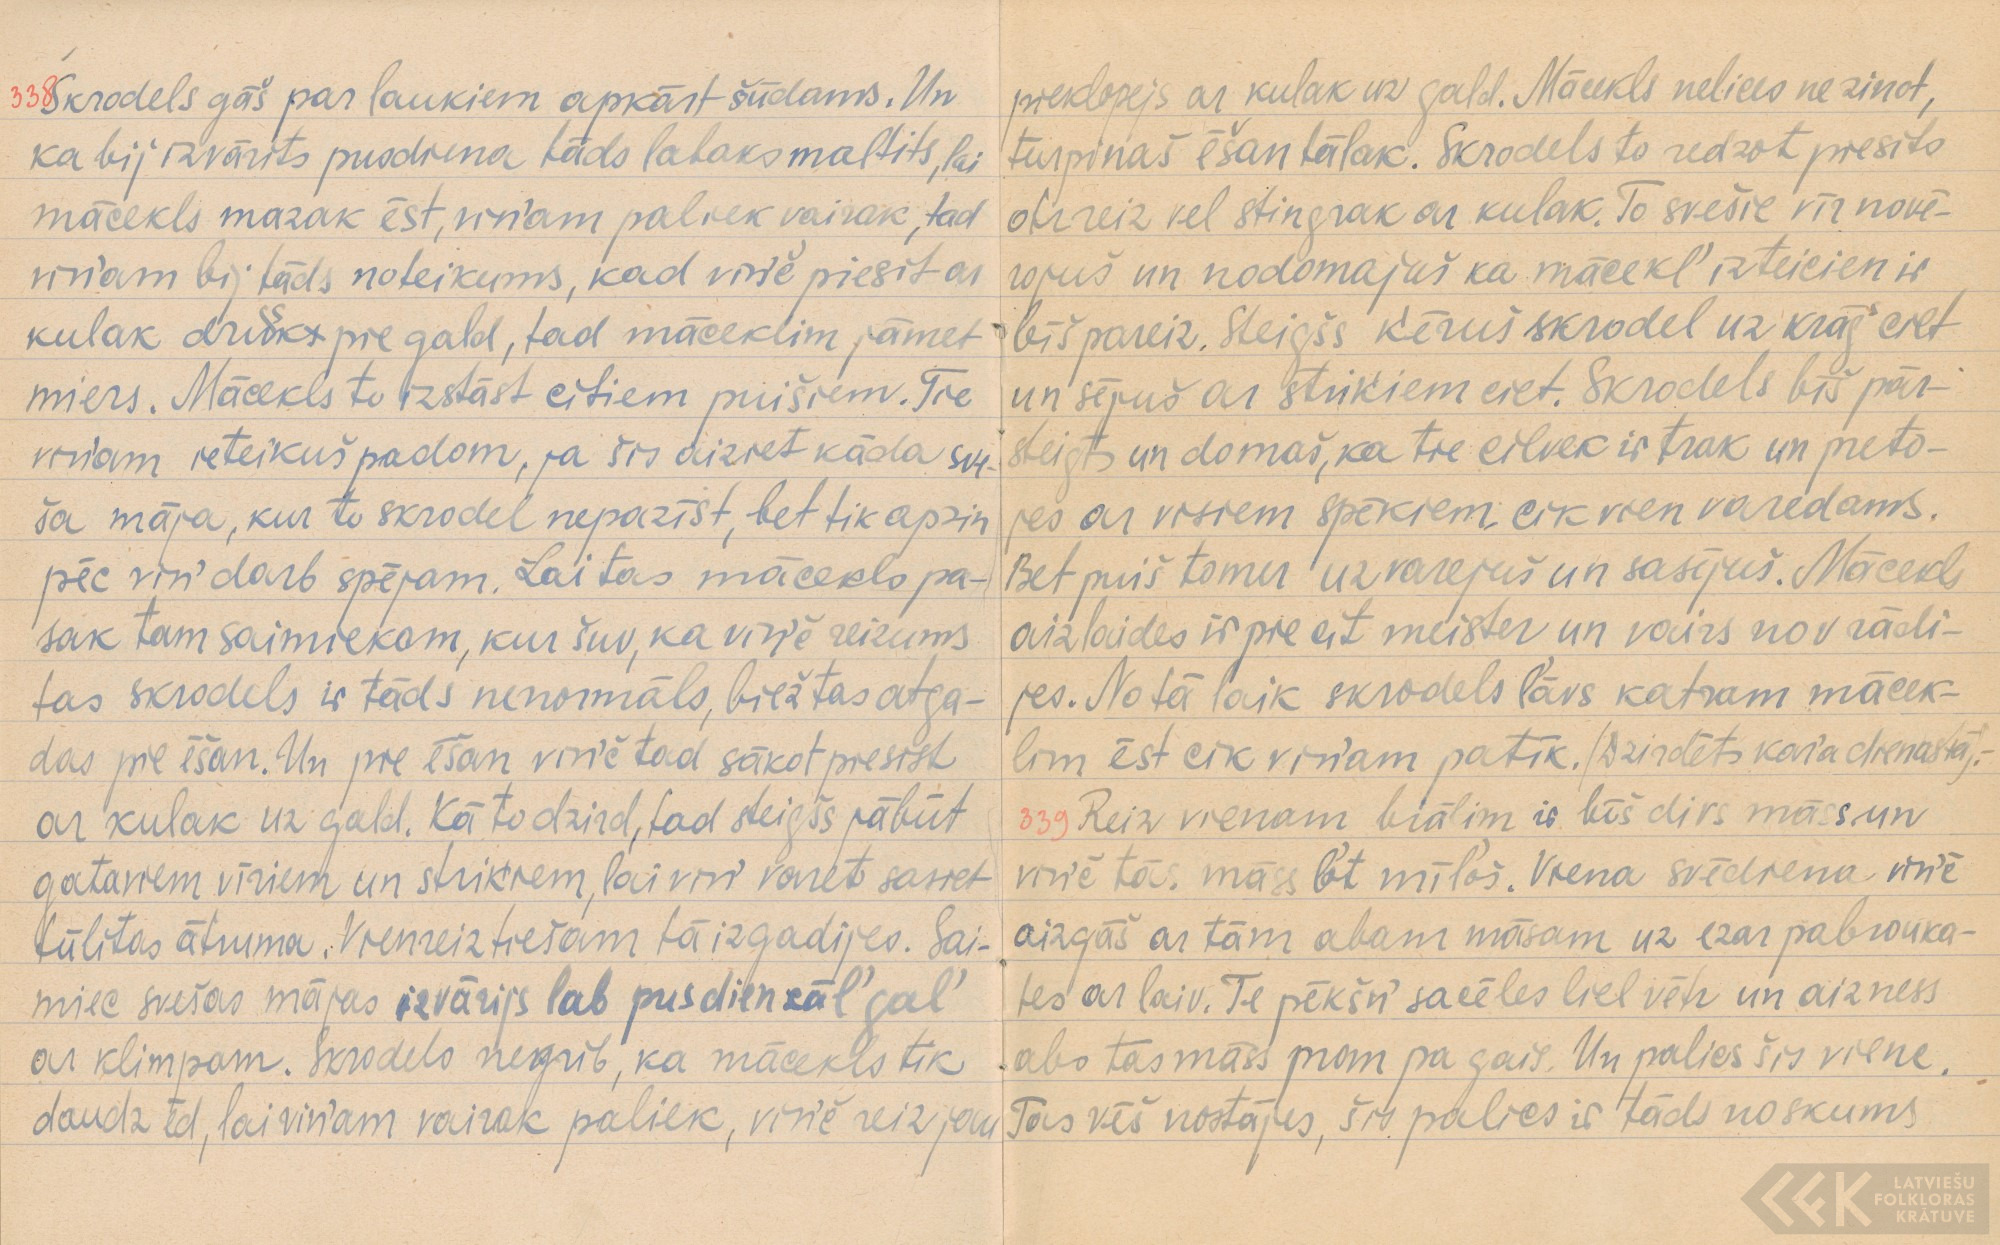 338 Skrodels gāš par laukiem apkārt šūdams. Un
ka bij izvārits pusdiena tāds labaks maltits, lai
mācekls mazak ēst, viņ'am paliek vairak, tad
viņ'am bij tāds noteikums, kad viņ'ē piesit ar
kulak drušk pie gald, tad māceklim jāmet
miers. Mācekls to izstāst citiem puišiem. Tie
viņ'am ieteikuš padom, ja šis aiziet kāda sve-
ša māja, kur to skrodel nepazīst, bet tik apzin
pēc viņ' darb spējam. Lai tas mācekls pa-
sak tam saimiekam, kur šuv, ka viņ'ē reizums
tas skrodels ir tāds nenormāls, biež tas atga-
das pie ēšan. Un pie ēšan viņ'ē tad sākot piesist
ar kulak uz gald. Kā to dzird, tad steigšs jābūt
gataviem vīriem un strik'iem, lai viņ' varet sasiet
tūlītas ātruma. Vienreiz tiešam tā izgadijes. Sai-
miec svešas mājas izvārijs lab pusdien zāl' gal'
ar klimpam. Skrodels negrib, ka mācekls tik
daudz ēd, lai viņ'am vairak paliek, viņ'ē reiz jau
pieklopejs ar kulak uz gald. Mācekls nelices ne zinot,
turpinaš ēšan tālak. Skrodels to redzot piesits
otrreiz vel stingrak ar kulak. To svešie vīr novē-
rojuš un nodomajuš ka mācekl' izteicien ir
bīš pareiz. Steigšs k'ēruš skrodel uz krāg' ciet
un sējuš ar strik'iem ciet. Skrodels bīš pār-
steigts un domaš, ka tie cilvek ir trak un preto-
jes ar visiem spēkiem, cik vien varedams.
Bet puiš tomer uzvarejuš un sasējuš. Mācekls
aizlaides ir pie cit meister un vairs nov rādi-
jes. No tā laik skrodels l'āvs katram mācek-
lim ēst cik viņ'am patīk. (Dzirdēts kar'a dienastāj.-
339 Reiz vienam brālim ir bīš divs māss un
viņ'ē tās māss l'ot mīl'oš. Viena svēdiena viņ'ē
aizgāš ar tām abam māsam uz ezar pabrouka-
tes ar laiv. Te pēkšņ' sacēles liel vētr un aizness
abs tas māss prom pa gais. Un palies šis viene.
Tas vēš nostājes, šis palics ir tāds noskums
LATVIEŠU
FOLKLORAS
KRĀTUVE